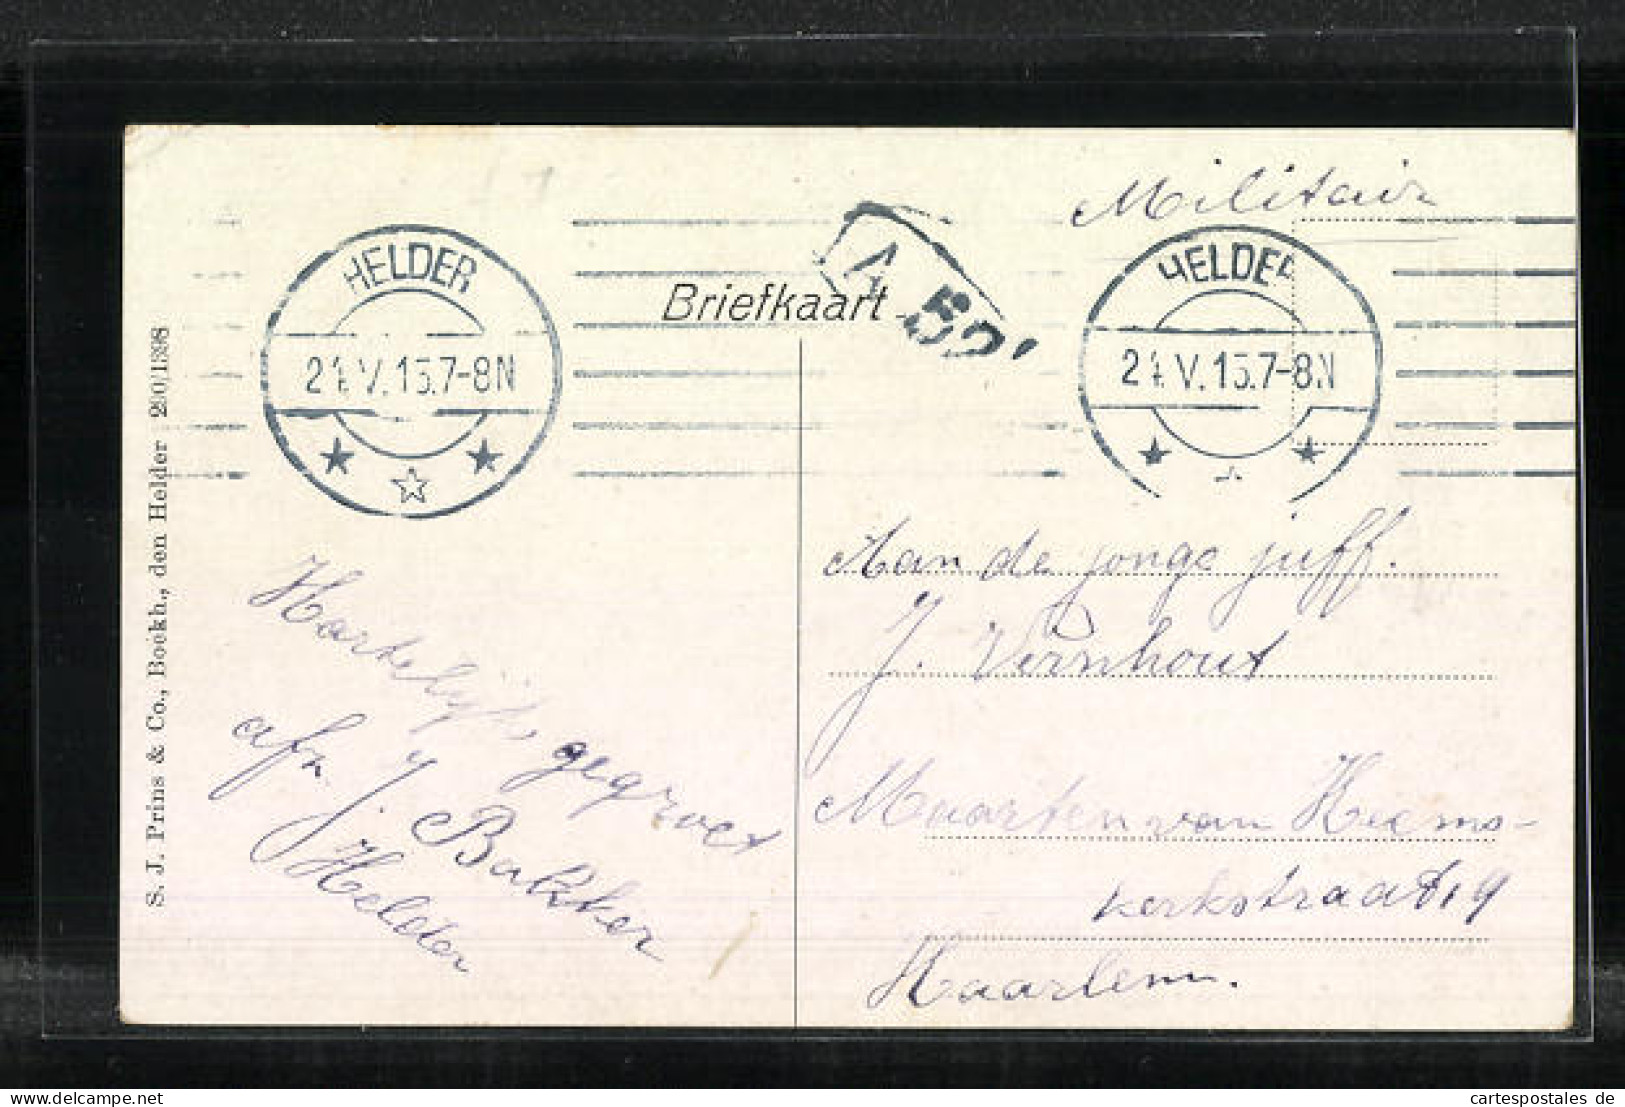 Militair
HELDER
24.V.15.7-8N
HELDER
24.V.15.7-8N
Briefkaart
A
S. J. Prins & Co., Boekh., den Helder 290/1398
Aan de jonge juff.
J. Vernhout
Maarten van Heems-
kerkstraat 19
Haarlem.
Hartelijk gegroet
afz J. Bakker
Helder
cartespostales de
www.delcampe.net